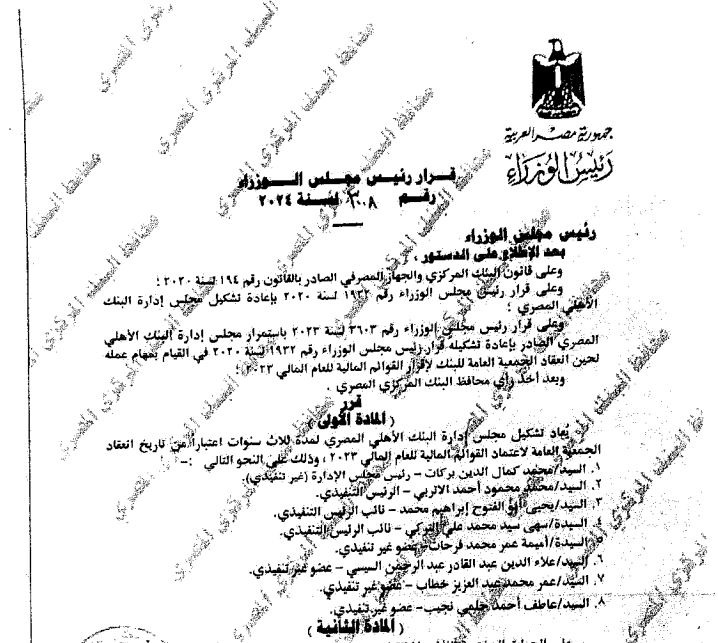 جمهورية مصر العربية
رئيس الوزراء
قرار رئيس مجلس الوزراء
رقم ٣٠٠٨ لسنة ٢٠٢٤
رئيس مجلس الوزراء
بعد الإطلاع على الدستور ،
وعلى قانون البنك المركزي والجهاز المصرفي الصادر بالقانون رقم ١٩٤ لسنة ٢٠٢٠ ؛
وعلى قرار رئيس مجلس الوزراء رقم ١٩٣٢ لسنة ٢٠٢٠ بإعادة تشكيل مجلس إدارة البنك
الأهلي المصري ؛
وعلى قرار رئيس مجلس الوزراء رقم ٣٦٠٣ لسنة ٢٠٢٣ باستمرار مجلس إدارة البنك الأهلي
المصري الصادر بإعادة تشكيله قرار رئيس مجلس الوزراء رقم ١٩٣٢ لسنة ٢٠٢٠ في القيام بمهام عمله
لحين انعقاد الجمعية العامة للبنك لإقرار القوائم المالية للعام المالي ٢٠٢٣ ؛
وبعد أخذ رأي محافظ البنك المركزي المصري .
قرر
( المادة الأولى )
يُعاد تشكيل مجلس إدارة البنك الأهلي المصري لمدة ثلاث سنوات اعتباراً من تاريخ انعقاد
الجمعية العامة لاعتماد القوائم المالية للعام المالي ٢٠٢٣ ، وذلك على النحو التالي :-
١. السيد/محمد كمال الدين بركات – رئيس مجلس الإدارة (غير تنفيذي).
٢. السيد/محمد محمود أحمد الاتربي – الرئيس التنفيذي.
٣. السيد/يحيى أبو الفتوح إبراهيم محمد – نائب الرئيس التنفيذي.
٤. السيدة/سهى سيد محمد علي التركي – نائب الرئيس التنفيذي.
٥. السيدة/أميمة عمر محمد فرحات – عضو غير تنفيذي.
٦. السيد/علاء الدين عبد القادر عبد الرحمن السيسي – عضو غير تنفيذي.
٧. السيد/عمر محمد عبد العزيز خطاب – عضو غير تنفيذي.
٨. السيد/عاطف أحمد حلمي نجيب – عضو غير تنفيذي.
( المادة الثانية )
محافظ البنك المركزي المصري